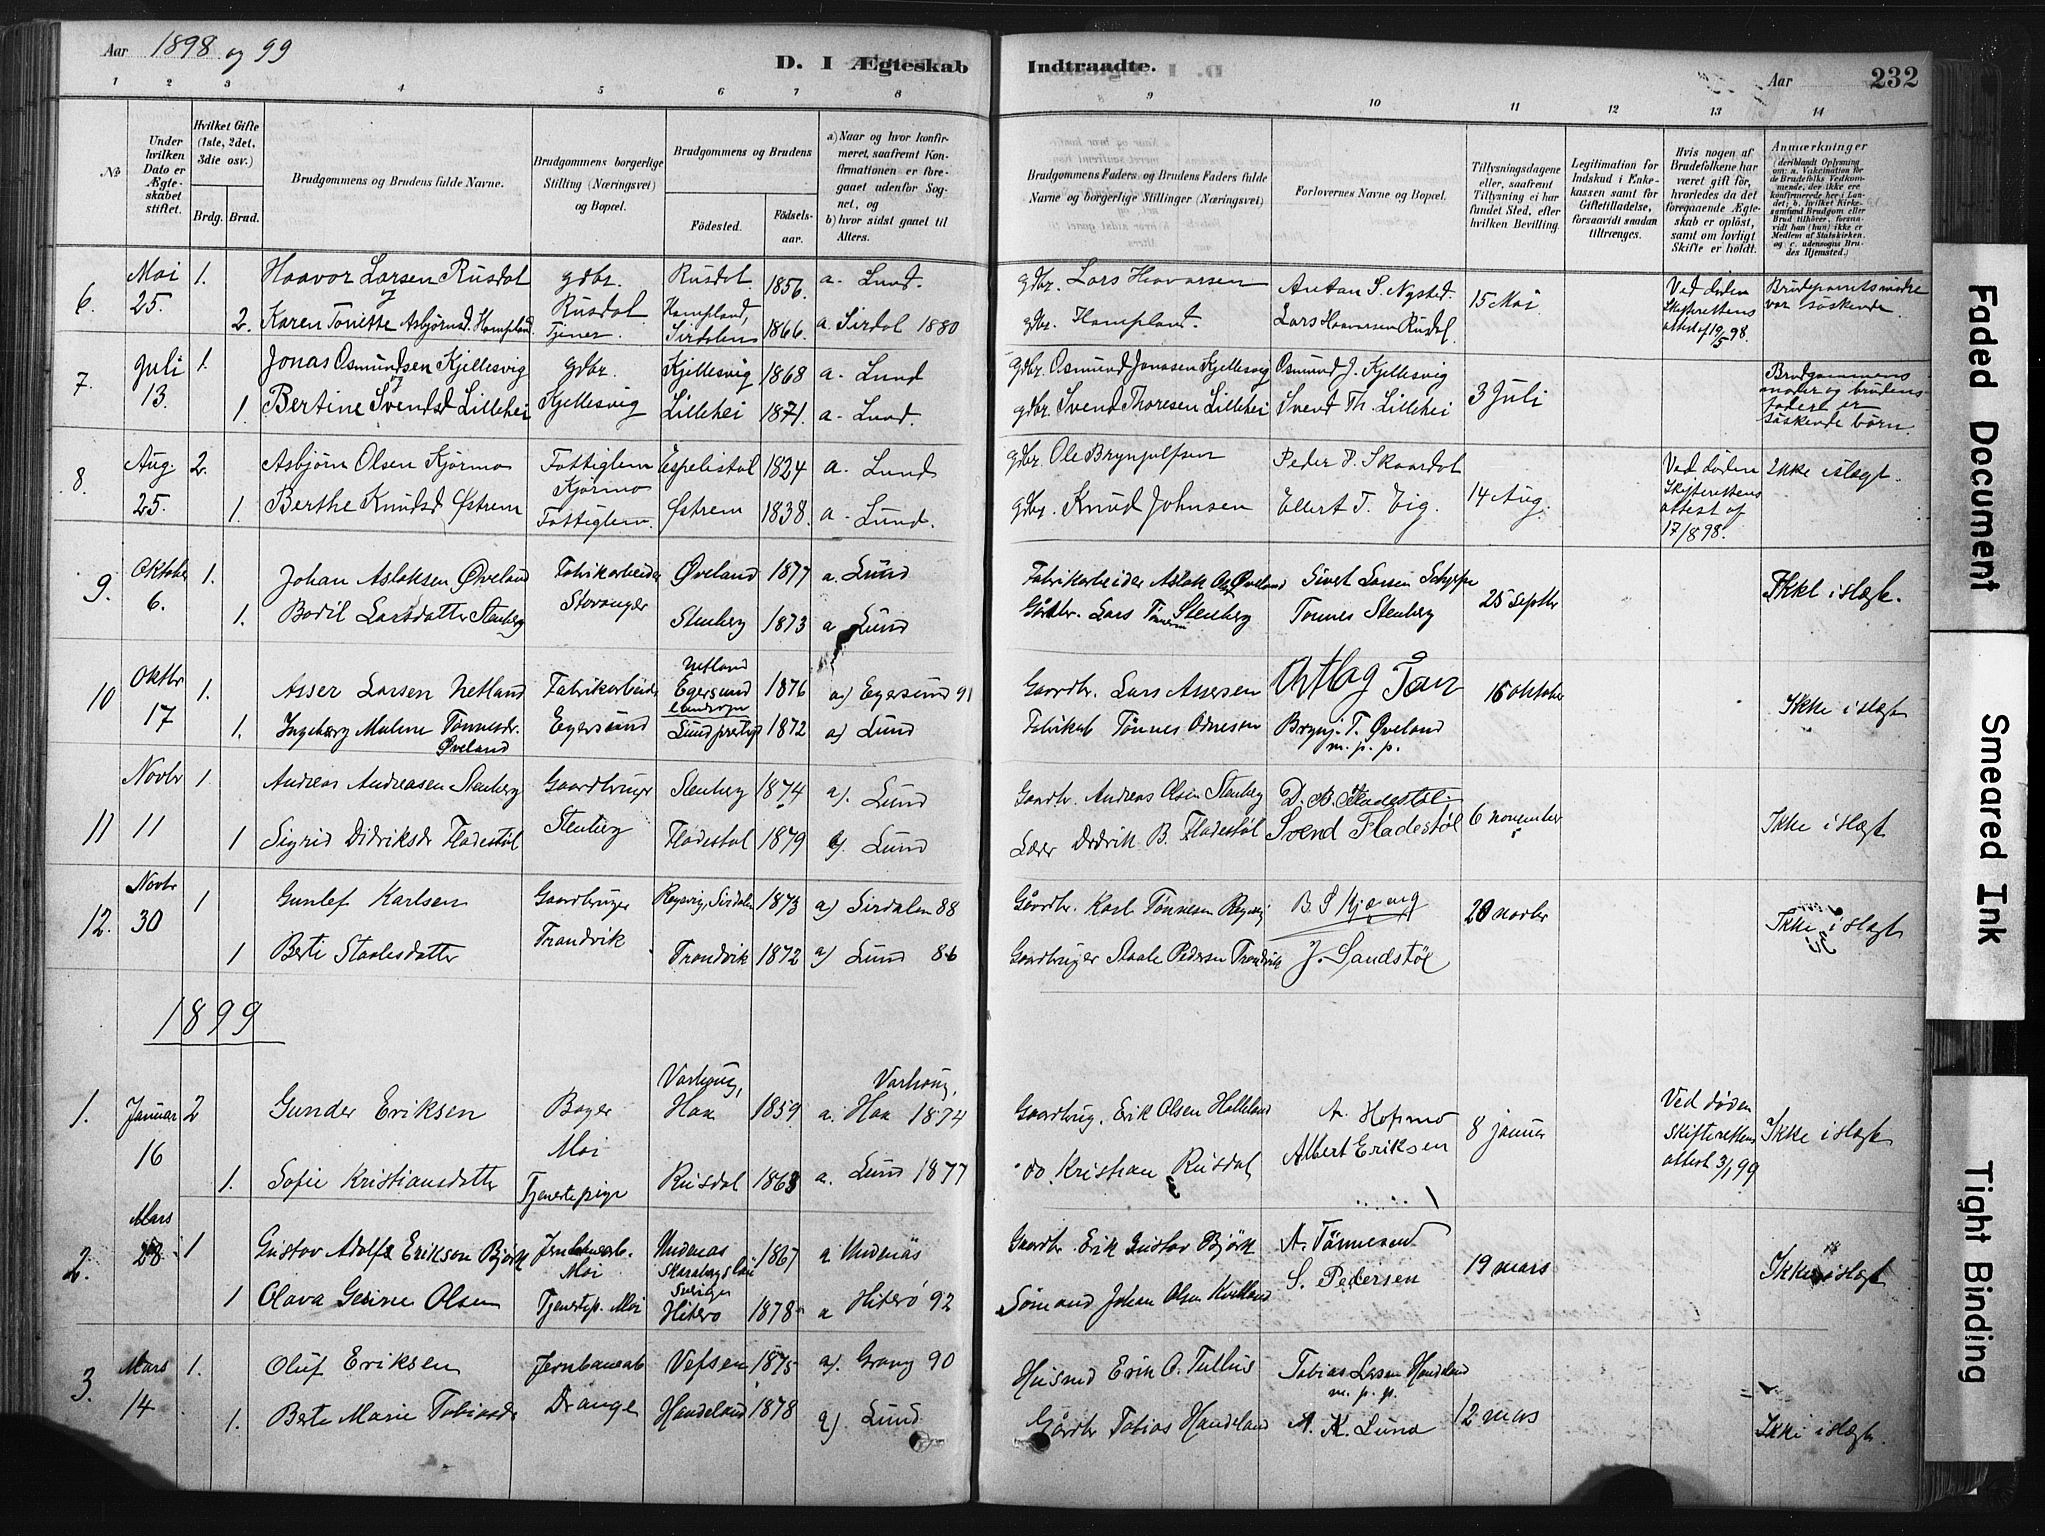 Aar 1898 og 99
D. I Ægteskab Indtraadte.
Aar 232
1 2 3 4 5 6 7 8 9 10 11 12 13 14
No
Under hvilken Dato er Ægteskabet stiftet.
Hvilket Gifte (1ste, 2det, 3die osv.)
Brdg. Brud.
Brudgommens og Brudens fulde Navne.
Brudgommens borgerlige Stilling (Næringsvei) og Bopæl.
Brudgommens og Brudens
Fødested. Fødsels-aar.
a) Naar og hvor konfirmeret, saafremt Konfirmationen er foregaaet udenfor Sognet, og
b) hvor sidst gaaet til Alters.
Brudgommens Faders og Brudens Faders fulde Navne og borgerlige Stillinger (Næringsvei)
Forlovernes Navne og Bopæl.
Tillysningsdagene eller, saafremt Tillysning ei har fundet Sted, efter hvilken Bevilling.
Legitimation for Indskud i Enkekassen samt for Giftetilladelse, forsaavidt saadan tiltrænges.
Hvis nogen af Brudefolkene har været gift før, hvorledes da det foregaaende Ægteskab er opløst, samt om lovligt Skifte er holdt.
Anmærkninger (deriblandt Oplysning om: a. Vakcination for de Brudefolks Vedkommende, der ikke ere konfirmerede her i Landet; b. hvilket Kirkesamfund Brudgom eller Brud tilhører, forsaavidt han (hun) ikke er Medlem af Statskirken, og c. udensogns Brudes Hjemsted.)
6. Mai 25. 1. Haavor Larsen Rusdal gdbr. Rusdal Rusdal 1856. a. Lund. gdbr. Lars Haavorsen Anton S. Nysted. 15 Mai Ved døden Skifterettens attest af 19/5 98. Brudeparrets mødre var søskende.
2. Karen Tonette Asbjørnsd. Hompland. Tjener. Hompland, Sirdalen 1866. a. Sirdal 1880 gdbr. Hompland. Lars Haavorsen Rusdal.
7. Juli 13. 1. Jonas Osmundsen Kjellesvig gdbr. Kjellesvig Kjellesvig 1868 a. Lund gdbr. Osmund Jonassen Kjellesvig Osmund J. Kjellesvig 3 Juli Brudgommens moder og brudens fader er søskende børn.
1. Bertine Svendsd Lillehei Lillehei 1871. a. Lund. gdbr. Svend Thoresen Lillehei Svend Th. Lillehei
8. Aug. 25. 2. Asbjørn Olsen Kjørmo Fattiglem Kjørmo Espelistøl 1824 a. Lund gdbr. Ole Brynjulfsen Peder P. Skaardal 14 Aug. Ved døden Skifterettens attest af 17/8 98. Ikke i slægt.
1. Berthe Knudsd Østrem Fattiglem. Østrem 1838. a. Lund. gdbr. Knud Johnsen Ellert T. Eig.
9. Oktober 6. 1. Johan Aslaksen Øveland Fabrikarbeider Stavanger Øveland 1877 a. Lund Fabrikarbeider Aslak Øveland Sivert Larsen 25 Septbr Ikke i slægt.
1. Bodil Larsdatter Stenberg Stenberg 1873 a Lund Gårdbr. Lars Tønnesen Stenberg Tønnes Stenberg
10 Oktbr 17 1. Asser Larsen Netland Fabrikarbeider Egersund Netland Egersund landsogn 1876 a) Egersund 91 Gaardbr. Lars Assersen 16 oktober Ikke i slægt
1. Ingeborg Malene Tønnesdr. Øveland 1872 a) Lund Tønnes Brynj. T. Øveland m. p. p.
11 Novbr 11 1. Andreas Andreasen Stenberg Gaardbruger Stenberg Stenberg 1874 a). Lund Gaardbr. Andreas Olsen Stenberg D. B. Fladestøl 6 november Ikke i slægt
1 Sigrid Didriksdr Fladestøl Fladestøl 1879 a). Lund Lærer Didrik B. Fladestøl Svend Fladestøl
12. Novbr 30 1 Gunlef Karlsen Gaardbruger Trondvik Sirdalen 1873 a) Sirdalen 88 Gårdbr. Karl Tønnesen 20 novbr Ikke i slægt
1 Berte Staalesdatter Trondvik 1872 a) Lund 86 Gaardbruger Staale Pedersen Trondvik J. Sandstøl
1899
1. Januar 16 2 Gunder Eriksen Bager Moi Varhoug, Haa 1859 a. Varhoug, Haa 1874 Gaardbrug. Erik Olsen Halleland A. Hofsmo 8 januar Ved døden skifterettens attest 3/1 99 Ikke i slægt
1. Sofie Kristiansdatter Tjenestepige Rusdal 1863 a. Lund 1877 do Kristian Rusdal Albert Eriksen
2. Mars 28 1 Gustav Adolf Erikson Bjørk Moi Undenäs Skaraborgs län Sverige 1867 a Undenäs Gaardbr. Erik Gustav Bjørk A. Tønnesen 19 mars Ikke i slægt
1 Olava Gesine Olsen Tjenestep. Moi Hiterø 1878 a Hiterø 92 Sømand Johan Olsen S. Pedersen
3. Mars 14 1. Oluf Eriksen Jernbanearb Drange Vefsen 1875 a). 90 Husmd Erik O. Tobias Larsen Handeland m. p. p. 12 mars Ikke i slægt.
1. Berte Marie Tobiasdr Handeland 1878 a). Lund Gårdbr Tobias Handeland A. K. Lund
Faded Document
Smeared Ink
Tight Binding